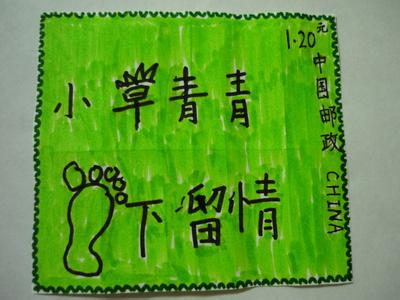 小草青青
下留情
1.20元
中国邮政 CHINA